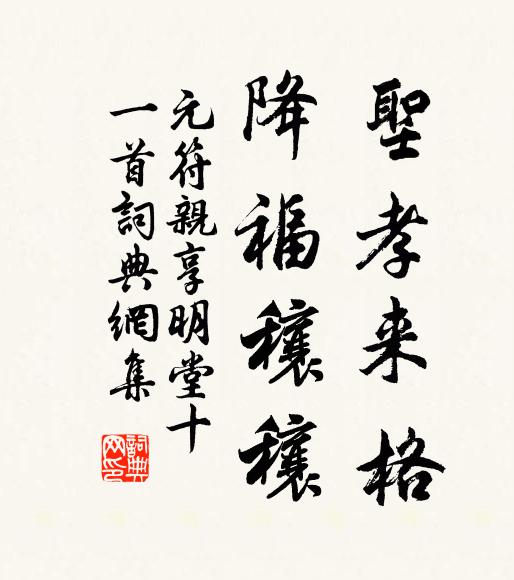 聖孝来格
降福穰穰
元符親享明堂十
一首詞典網集
詞典网印